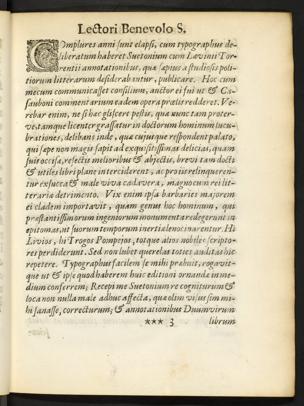 Lectori Benevolo S.
Complures anni sunt elapsi, cum typographus de-
liberatum haberet Suetonium cum Lævini Tor-
rentii annotationibus, quæ sæpius a studiosis poli-
tiorum litterarum desiderabantur, publicare. Hoc cum
mecum communicasset consilium, auctor ei fui ut & Ca-
sauboni commentarium eadem opera prælis redderet. Ve-
rebar enim, ne si hæc gliscere pestis, qua nunc tam proter-
ve, tamque licenter grassatur in doctorum hominum lucu-
brationes, delibans inde, quæ cujusque respondent palato,
qui sæpe non magis sapit ad exquisitissimas delicias, quam
suit occisa, rejectis melioribus & abjectis, brevi tam docti
& utiles libri plane interciderent, ac pro iis relinqueren-
tur exsucta & male viva cadavera, magno cum rei lit-
terariæ detrimento. Vix enim ipsa barbaries majorem
ei cladem importavit, quam genus hoc hominum, qui
præstantissimorum ingeniorum monumenta redegerunt in
epitomas, ut suorum temporum inertiæ lenocinarentur. Hi
Livios, hi Trogos Pompejos, totque alios nobiles scripto-
res perdiderunt. Sed non lubet querelas toties auditas hic
repetere. Typographus facilem se mihi præbuit, rogavit-
que ut & ipse quod haberem huic editioni ornandæ in me-
dium conferrem; Recepi me Suetonium re cogniturum &
loca non nulla male adhuc affecta, quæ olim visus sum mi-
hi sanasse, correcturum; & annotationibus Duumvirum
*** 3 librum